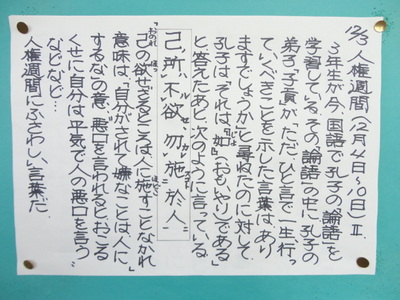 12/3 人権週間(12月4日~10日)Ⅱ
3年生が今、国語で孔子の「論語」を
学習している。その「論語」の中に、孔子の
弟子「子貢」が、ただひと言で一生行っ
ていくべきことを示した言葉は、あり
ますでしょうか」と尋ねたのに対して
孔子は「それは、『恕』(おもいやり)である」
と答えたあと、次のように言っている。
己所不欲勿施於人
「己の欲せざるところは人に施すことなかれ」
意味は、「自分がされて嫌なことは、人に
するな」の意。悪口を言われるとおこる
くせに自分は平気で人の悪口を言う
などなど…
人権週間にふさわしい言葉だ。